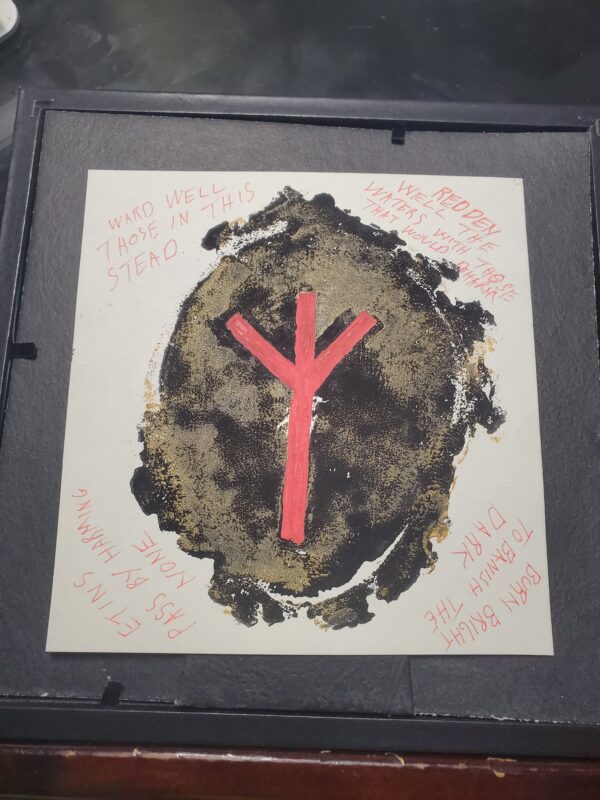 WARD WELL
THOSE IN THIS
STEAD.
REDDEN
WELL THE
WATERS WITH THOSE
THAT WOULD
ETINS
PASS BY HARMING
NONE
BURN BRIGHT
TO BANISH THE
DARK